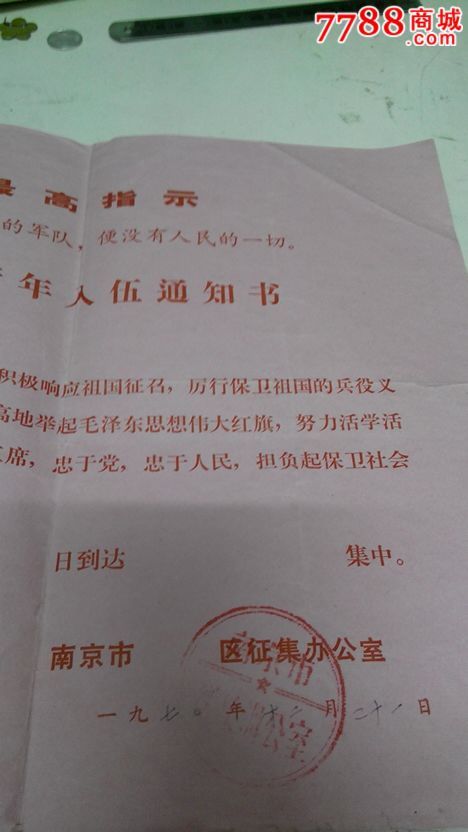 7788商城
.com
最高指示
的军队，便没有人民的一切。
年入伍通知书
积极响应祖国征召，厉行保卫祖国的兵役义
高地举起毛泽东思想伟大红旗，努力活学活
席，忠于党，忠于人民，担负起保卫社会
日到达 集中。
南京市 区征集办公室
南京市
公室
一九七〇年十二月二十 日